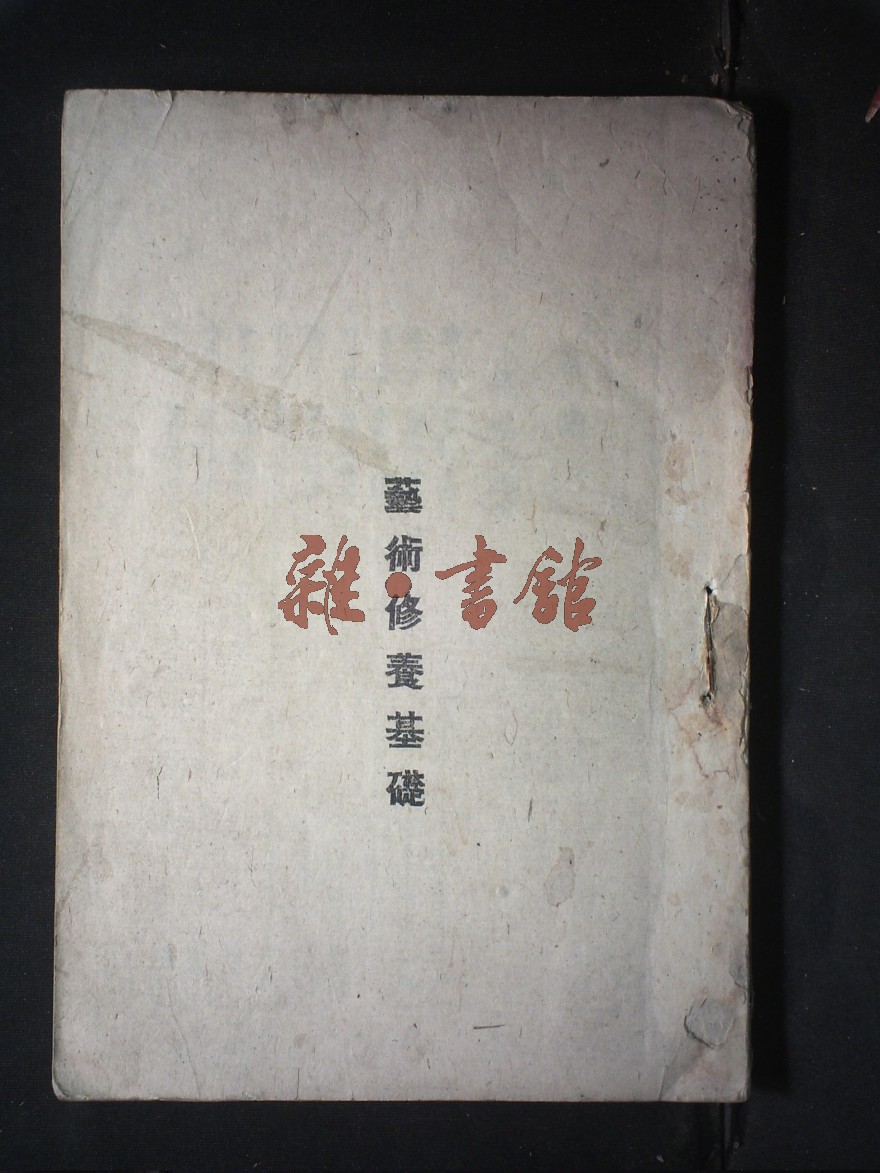 藝術修養基礎
雜·書館